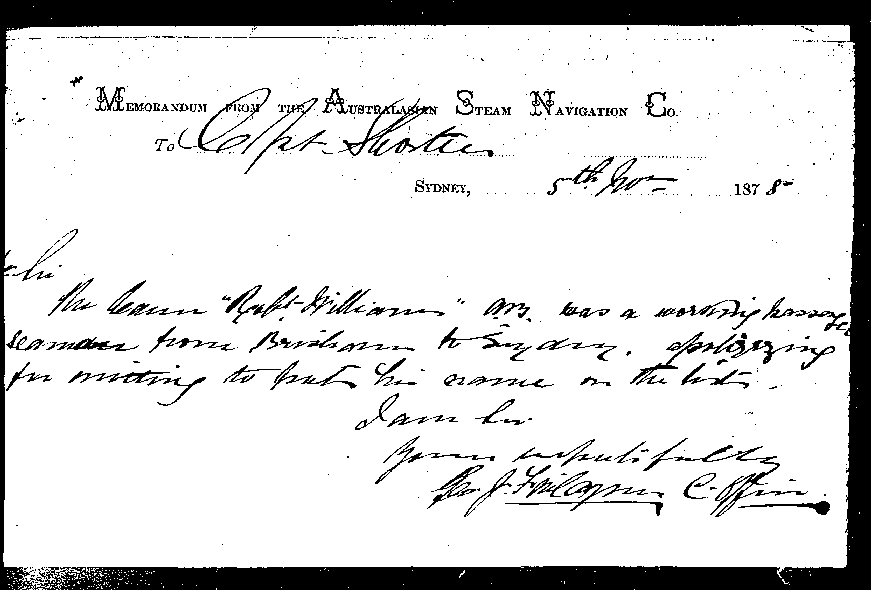 MEMORANDUM FROM THE AUSTRALASIAN STEAM NAVIGATION CO.
To Capt. Shorter
SYDNEY, 5th Nov 1878
Sir
The "Robt. Williams" A.B. was a working passage
seaman from Brisbane to Sydney. Apologizing
for omitting to put his name on the list.
I am Sir
Yours respectfully
J. C. Officer